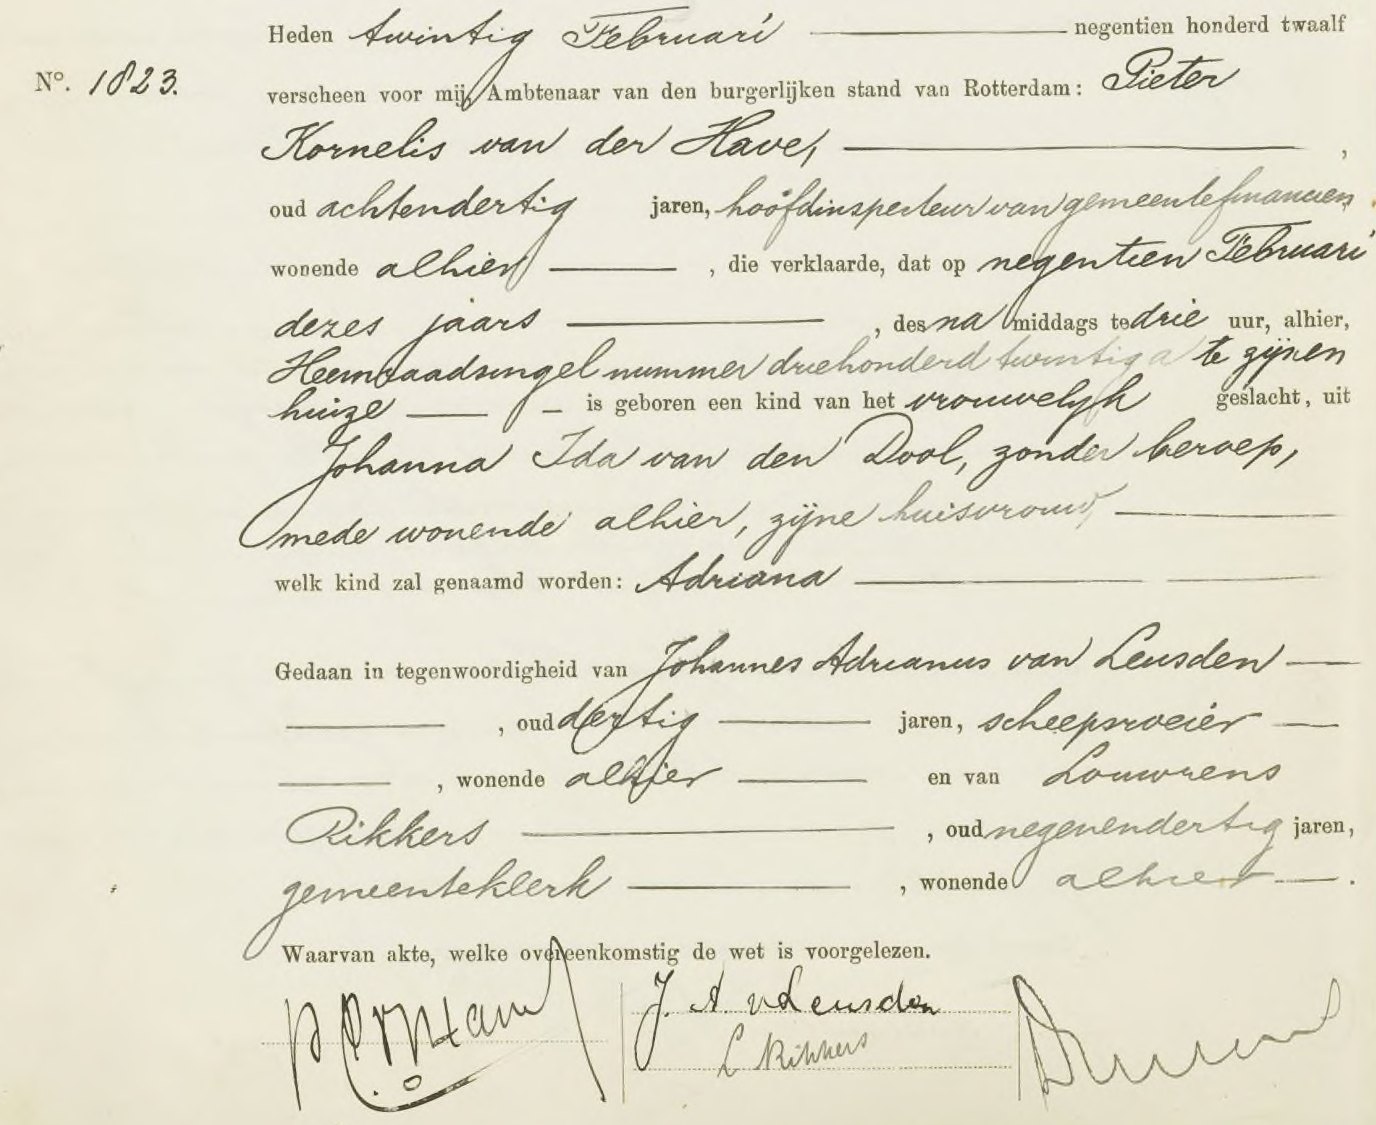 Heden twintig Februari negentien honderd twaalf
No. 1823.
verscheen voor mij, Ambtenaar van den burgerlijken stand van Rotterdam: Pieter
Kornelis van der Have,
oud achtendertig jaren, hoofdinspecteur van gemeentefinancien,
wonende alhier, die verklaarde, dat op negentien Februari
dezes jaars, des na middags te drie uur, alhier,
Heemraadsingel nummer driehonderd twintig a te zijnen
huize is geboren een kind van het vrouwelijk geslacht, uit
Johanna Ida van den Dool, zonder beroep,
mede wonende alhier, zijne huisvrouw,
welk kind zal genaamd worden: Adriana
Gedaan in tegenwoordigheid van Johannes Adrianus van Leusden
, oud dertig jaren, scheepsroeier
, wonende alhier en van Louwrens
Rikkers, oud negenendertig jaren,
gemeenteklerk, wonende alhier.
Waarvan akte, welke overeenkomstig de wet is voorgelezen.
J. A. v Leusden
L Rikkers